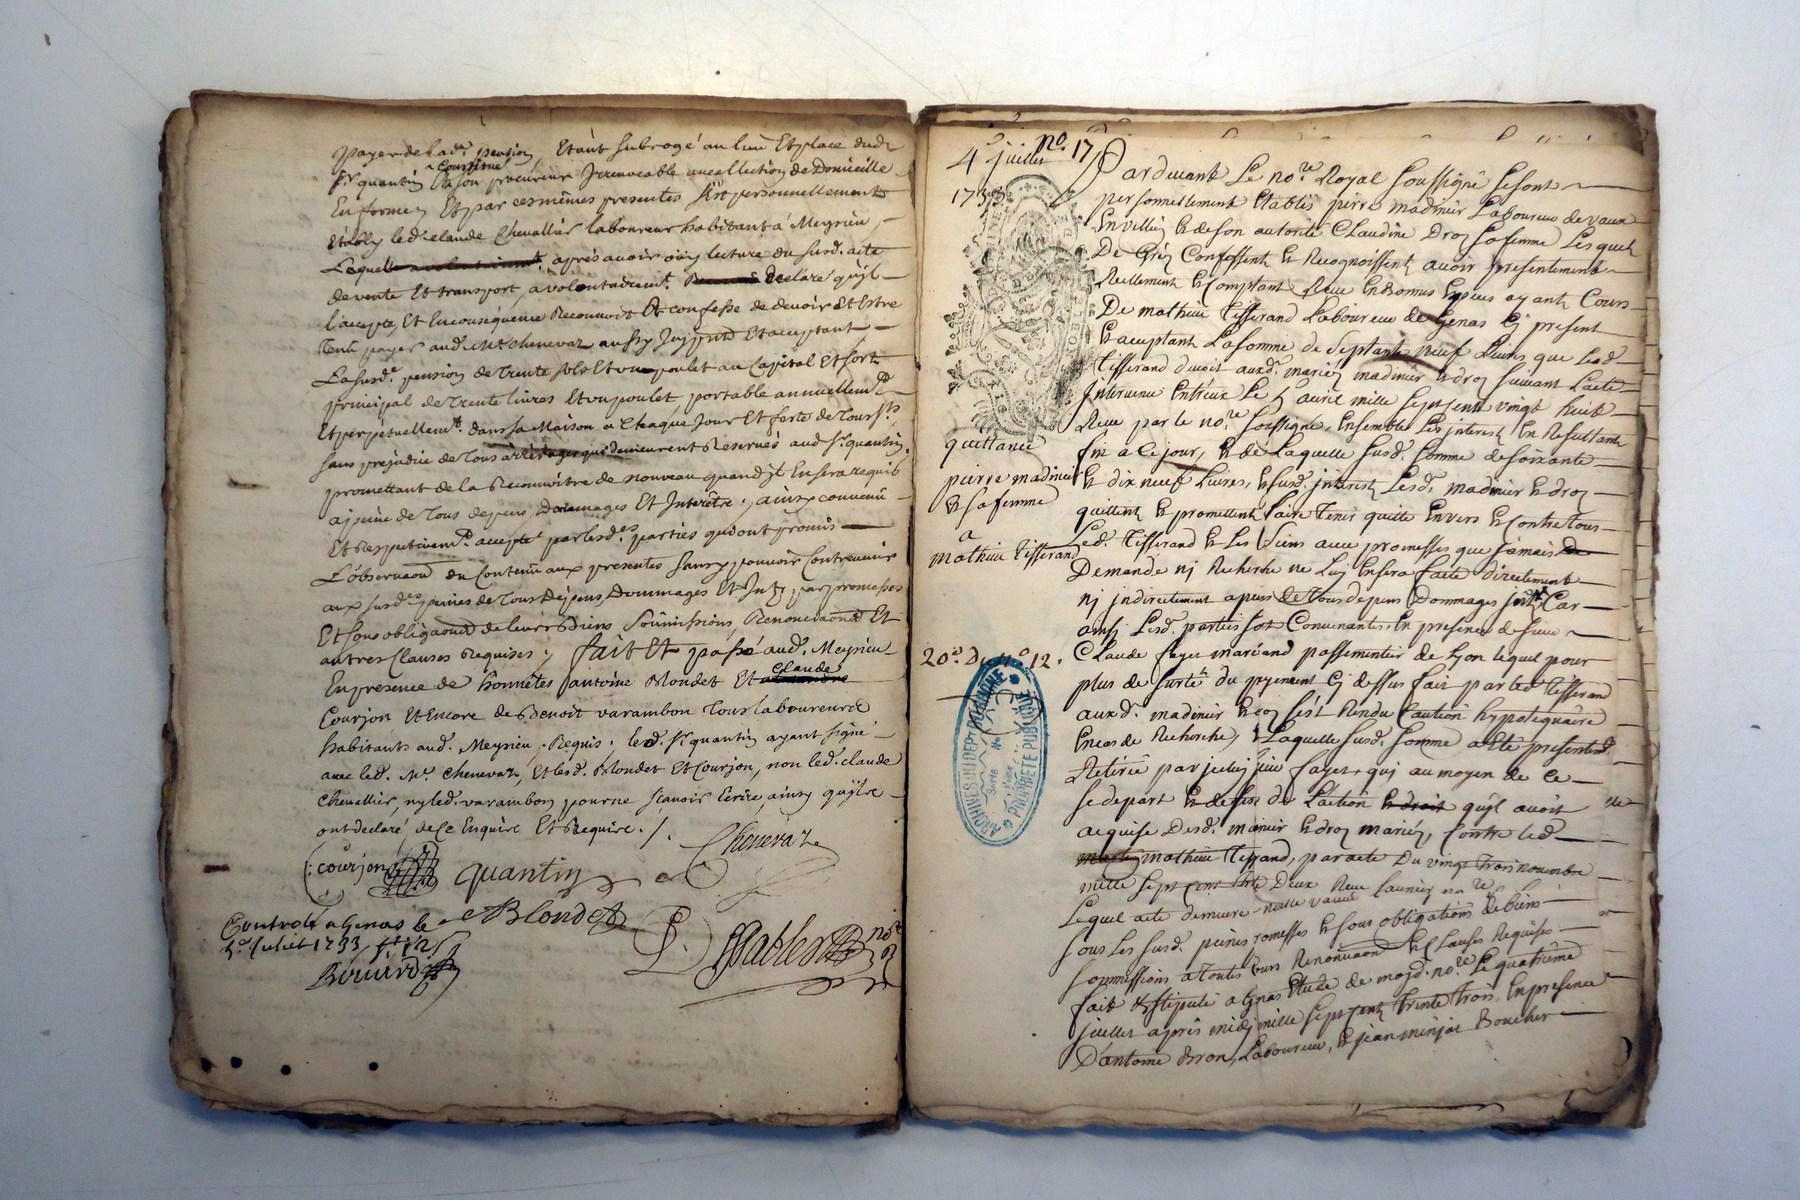 payer de lad.e pension Etant subrogé au lieu Et place dud.
Sr quantin Constitue son procureur Irrevocable avec Ellection de Domicille
En forme, Et par ces mêmes presentes s'est personnellement
Etably led. Claude Chevallier laboureur habitant à Meyzieu,
Lequel après avoir oüy lecture du susd. acte
de vente Et transport, a volontairemt. Declaré qu'il
l'accepte, Et En conséquence Reconnoit Et confesse de devoir Et Estre
Tenu payer aud. Me. Chenevaz aussy Icy pnt. Et acceptant
La susd.e pension de Trente sols Et un poulet au Capital Et sort
principal de Trente livres Et un poulet portable annuellemt.
Et perpetuellemt. dans sa Maison a Chaque Jour Et feste de Tour Sts
sans prejudice de Tous arrérages qui demeurent Reservés aud. Sr quantin
promettant de la Reconnoitre de nouveau quand Il En sera requis
a peine de Tous depens, Dommages Et Interêts, ainsy convenu
Et Respectivemt. accepté par lesd.es parties qui ont promis
L'observaon du Contenu aux presentes sans y pouvoir Contrevenir
aux susd.es peines de Tous Depens, Dommages Et Int. par promesses
Et sous obligaons de leurs Biens Soumissions, Renonciaons Et
autres Clauses Requises, fait Et passé aud. Meyzieu
En presence de honnêtes antoine Blondet Et Claude
Courjon Et Encore de Benoit varambon Tous laboureurs
habitants aud. Meyzieu Requis. led. Sr quantin ayant signé
avec led. Me. Chenevaz, Et lesd. Blondet Et Courjon, non led. claude
Chevallier, ny led. varambon pour ne scavoir Ecrire, ainsy qu'ils
ont declaré, de Ce Enquis Et Requis./.
courjon
quantin
Chenevaz
Blondet
Controlé a Genas le
Juliet 1733
no. 17
4 juillet
1733
quittance
pierre madinier
& sa femme
a
mathieu Tisserand
20e. De
12.
ARCHIVES DU DEPT
PROPRIÉTÉ PUBLIQUE
Pardevant Le no.re Royal soussigné se sont
personnellement Etablis pierre madinier Laboureur de vaux
En vellin & de son autorité CLaudine Droz sa femme Lesquels
De Gré Confessent & Recognoissent avoir presentement
Reellement & Comptant Receu En bonnes Especes ayants Cours
De mathieu Tisserand Laboureur de Genas Cy present
& acceptant La somme de septante neuf Livres que Led.
Tisserand devoit auxd. mariés madinier & droz suivant Lacte
Intervenu Entreux Le avril mille sept cent vingt huit
Receu par le no.re soussigné Ensemble Les interests En Resultants
fin a Ce jour, & de Laquelle susd. somme de soixante
& dix neuf Livres, & susd. interest Lesd. madinier & droz
quittent & promettent faire Tenir quitte Envers & Contre Tous
Led. Tisserand & Les siens avec promesses que jamais
Demande nj Recherche ne Luy En sera faite directement
nj indirectement a peine de Tous depens Dommages Car
ainsj Lesd. parties sont Convenantes, En presence de sieur
CLaude fayet marchand passementier de Lyon Lequel pour
plus de surté du payement Cj dessus fait par Led. Tisserand
auxd. madinier & droz s'est Rendu Caution hypotequaire
En cas de Recherche, Laquelle susd. somme a Eté presentemt.
Retirée par jceluj sieur fayet, quj au moyen de Ce
se depart & desiste de Laction qu'il avoit
acquise Desd. madinier & droz mariés, Contre Led.
mathieu Tisserand, par acte Du vingt Trois novembre
mille sept cent Trente Deux Receu no.re
Lequel acte demeure
sous Les susd. peines promesses & sous obligations de biens
soummissions a Toutes Cours Renonciaons & Clauses Requises
fait & stipulé a Genas Etude de mojd. no.re Le quatrième
juillet après midj mille sept cent Trente Trois, En presence
D'antoine Laboureur, & jean Boucher